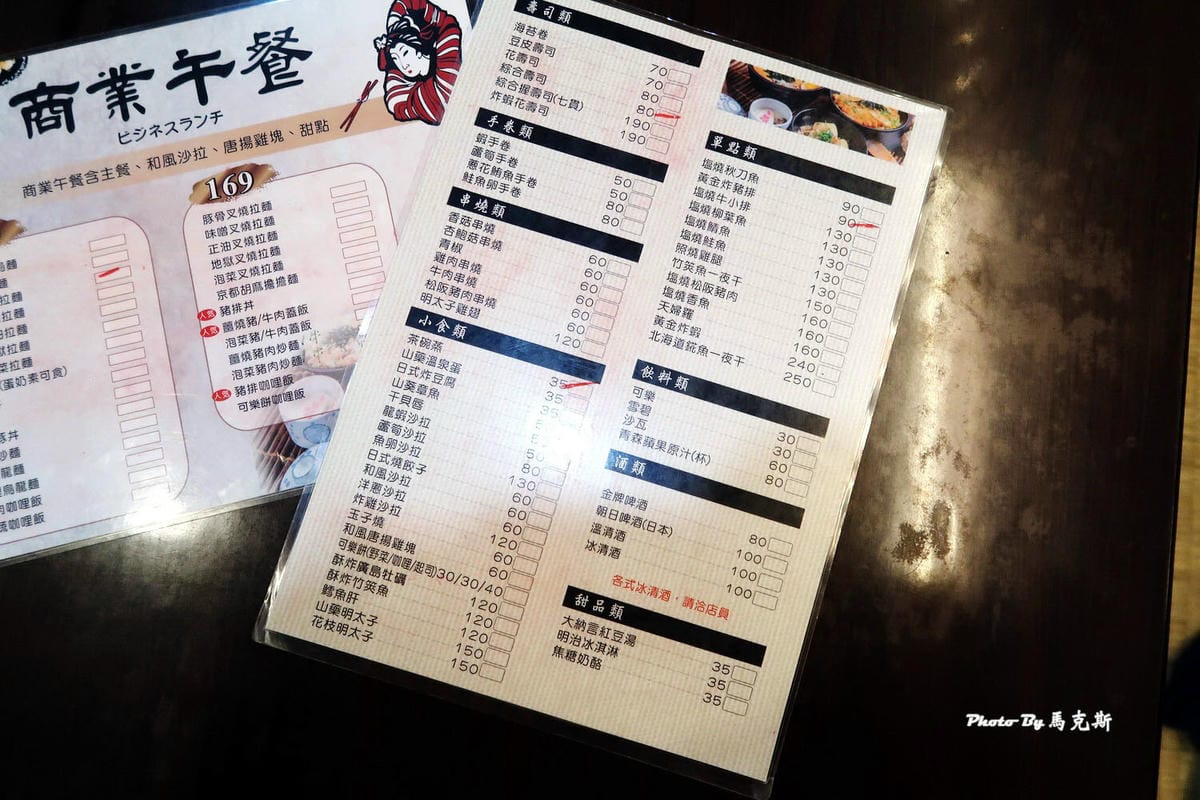 商業午餐
ビジネスランチ
商業午餐含主餐、和風沙拉、唐揚雞塊、甜點
169
豚骨叉燒拉麵
味噌叉燒拉麵
正油叉燒拉麵
地獄叉燒拉麵
泡菜叉燒拉麵
京都胡麻擔擔麵
人気 豬排丼
人気 薑燒豬/牛肉蓋飯
泡菜豬/牛肉蓋飯
薑燒豬肉炒麵
泡菜豬肉炒麵
人気 豬排咖哩飯
可樂餅咖哩飯
(蛋奶素可食)
烏龍麵
肉咖哩飯
咖哩飯
壽司類
海苔卷 70
豆皮壽司 70
花壽司 80
綜合壽司 80
綜合握壽司(七貫) 190
炸蝦花壽司 190
手卷類
蝦手卷 50
蘆筍手卷 50
蔥花鮪魚手卷 80
鮭魚卵手卷 80
串燒類
香菇串燒 60
杏鮑菇串燒 60
青椒 60
雞肉串燒 60
牛肉串燒 60
松阪豬肉串燒 60
明太子雞翅 120
小食類
茶碗蒸 35
山藥溫泉蛋 35
日式炸豆腐 35
山葵章魚
干貝唇
龍蝦沙拉 50
蘆筍沙拉 80
魚卵沙拉 130
日式燒餃子 60
和風沙拉 60
洋蔥沙拉 60
炸雞沙拉 120
玉子燒 60
和風唐揚雞塊 60
可樂餅(野菜/咖哩/起司) 30/30/40
酥炸廣島牡蠣 120
酥炸竹筴魚 120
鱈魚肝 120
山藥明太子 150
花枝明太子 150
單點類
塩燒秋刀魚 90
黃金炸豬排 90
塩燒牛小排 130
塩燒柳葉魚 130
塩燒鯖魚 130
塩燒鮭魚 130
照燒雞腿 130
竹筴魚一夜干 150
塩燒松阪豬肉 160
塩燒香魚 160
天婦羅 160
黃金炸蝦 240
北海道𩸽魚一夜干 250
飲料類
可樂 30
雪碧 30
沙瓦 60
青森蘋果原汁(杯) 80
酒類
金牌啤酒 80
朝日啤酒(日本) 100
溫清酒 100
冰清酒 100
各式冰清酒，請洽店員
甜品類
大納言紅豆湯 35
明治冰淇淋 35
焦糖奶酪 35
Photo By 馬克斯